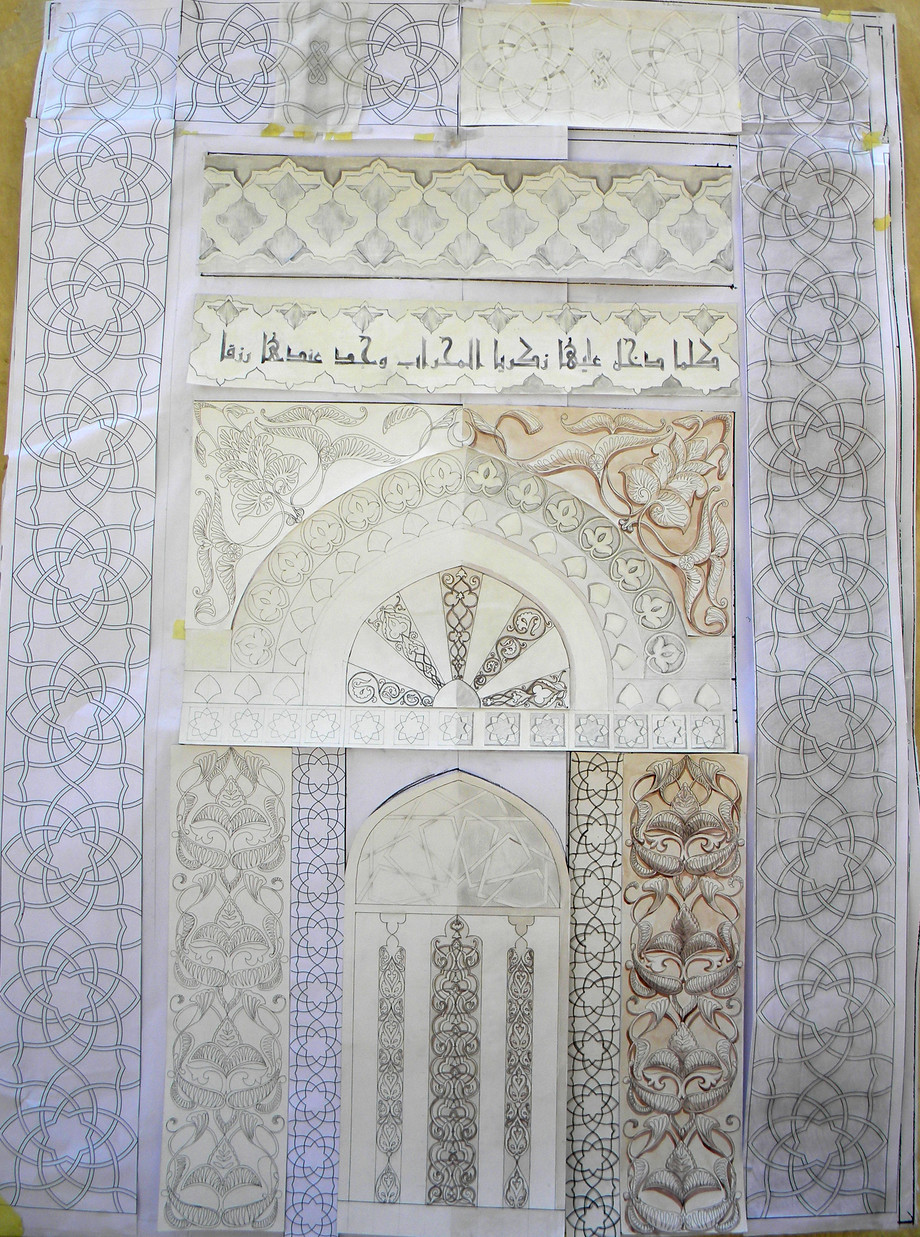 كلما دخل عليها زكريا المحراب وجد عندها رزقا